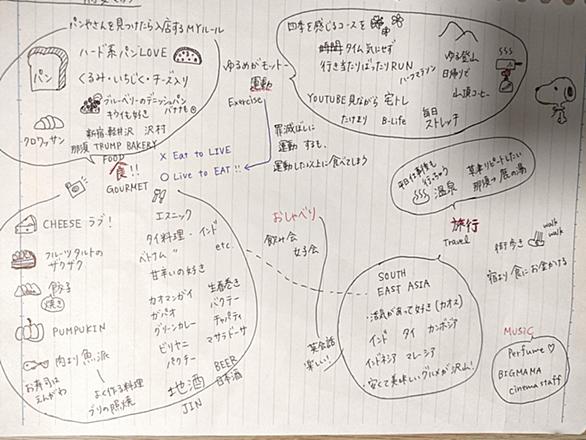 パンやさんを見つけたら入店するMYルール
ハード系パンLOVE
パン
くるみ・いちじく・チーズ入り
ブルーベリーのデニッシュパン
キウイも好き
バナナも
クロワッサン
新宿・軽井沢 沢村
那須 TRUMP BAKERY
FOOD
食!!
GOURMET
× Eat to LIVE
○ Live to EAT!!
ゆるめがモットー
運動
Exercise
罪滅ぼしに
運動するも、
運動した以上に食べてしまう
四季を感じるコースを
時間タイム気にせず
行き当たりばったりRUN
ハーフマラソン
ゆる登山
日帰りで
山頂コーヒー
YOUTUBE見ながら宅トレ
たけまり B-life
毎日
ストレッチ
平日仕事後も
行っちゃう
温泉
草津リピートしたい
那須→鹿の湯
旅行
Travel
街歩き
walk
walk
宿より食にお金かける
CHEESE ラブ!
フルーツタルトの
ザクザク
餃子
焼き
PUMPUKIN
肉より魚派
お寿司は
えんがわ
よく作る料理
ブリの照焼
エスニック
タイ料理・インド
ベトナム〃 etc.
甘辛いの好き
カオマンガイ
ガパオ
グリーンカレー
ビリヤニ
パクチー
生春巻き
バクテー
チャパティ
マサラドーサ
地酒
BEER
日本酒
JIN
おしゃべり
飲み会
女子会
英会話
楽しい!
SOUTH
EAST ASIA
・活気があって好き(カオス)
インド タイ カンボジア
インドネシア マレーシア
・安くて美味しいグルメが沢山!
MUSIC
Perfume♡
BIGMAMA
cinema staff